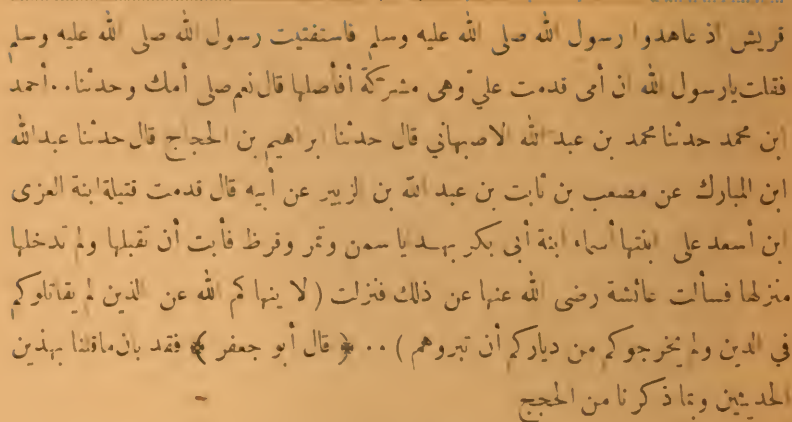 قريش اذ عاهدوا رسول الله صلى الله عليه وسلم فاستفتيت رسول الله صلى الله عليه وسلم
فقلت يارسول الله ان أمى قدمت علىّ وهى مشركة أفأصلها قال نعم صلى أمك وحدثنا .. أحمد
ابن محمد حدثنا محمد بن عبد الله الاصبهاني قال حدثنا ابراهيم بن الحجاج قال حدثنا عبدالله
ابن المبارك عن مصعب بن ثابت بن عبد الله بن الزبير عن أبيه قال قدمت قتيلة ابنة العزى
ابن أسعد على ابنتها أسماء ابنة أبى بكر بهدايا سمن وتمر وقرظ فأبت أن تقبلها ولم تدخلها
منزلها فسألت عائشة رضى الله عنها عن ذلك فنزلت ( لا ينهاكم الله عن الذين لم يقاتلوكم
في الدين ولم يخرجوكم من دياركم أن تبروهم ) .. ﴿ قال أبو جعفر ﴾ فقد بان ماقلنا بهذين
الحديثين وبما ذكرنا من الحجج